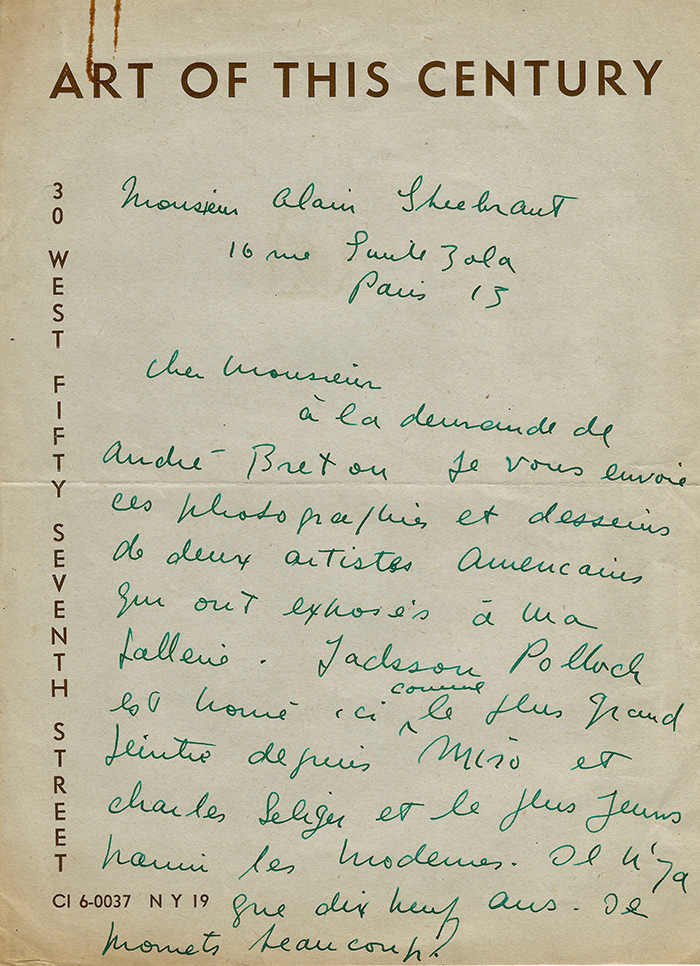 ART OF THIS CENTURY
30 WEST FIFTY SEVENTH STREET
CI 6-0037 N Y 19
Monsieur Alain
16 rue Emile Zola
Paris 13
Cher Monsieur
à la demande de
André Breton je vous envoie
ces photographies et dessins
de deux artistes Americains
qui ont exposés à ma
Gallerie. Jacksson Pollock
est ici comme le plus grand
peintre depuis Miro et
Charles Seliger et le plus jeune
parmi les modernes. Il n'ya
que dix neuf ans. Il
promets beaucoup.